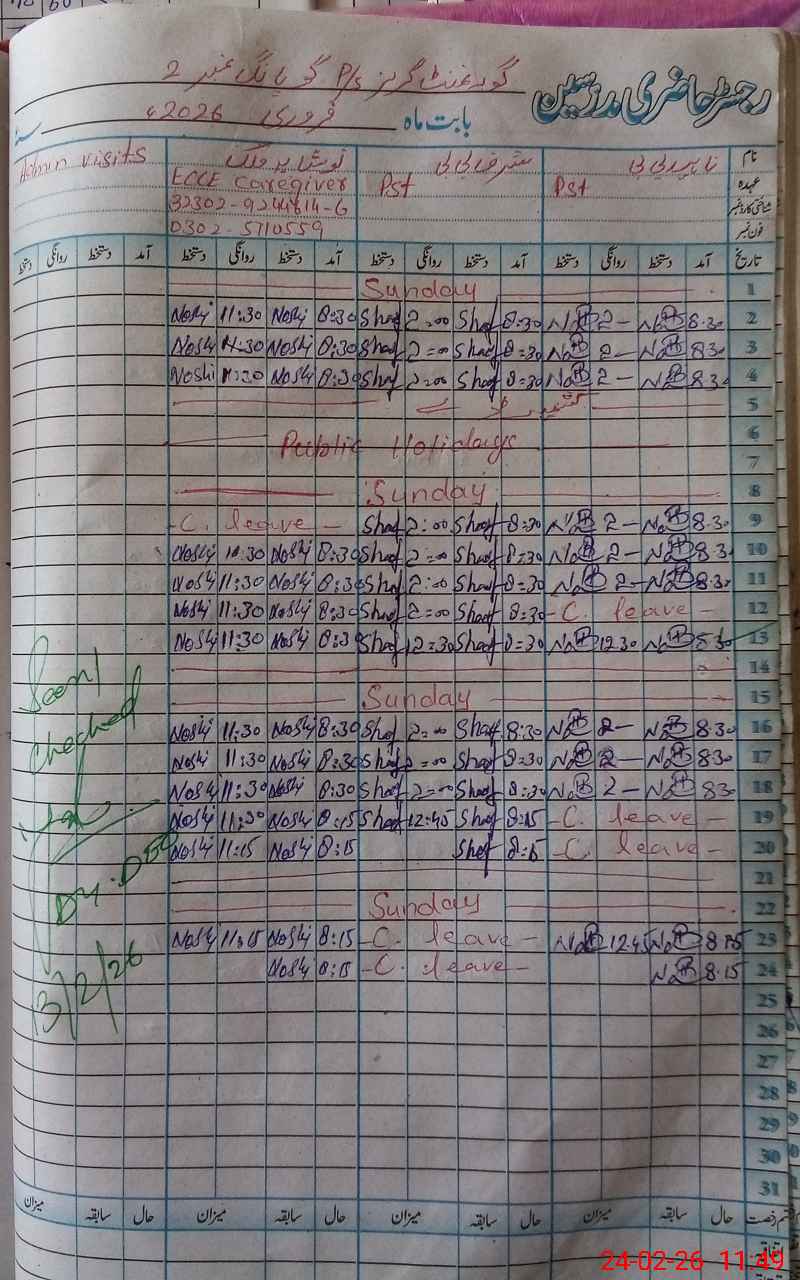 رجسٹر حاضری مدرسین
گورنمنٹ گرلز P/s گو یا نگ نمبر 2
بابت ماہ فروری 2026ء
نام ناہید بی بی شرف بی بی نوشابہ ملک Admn visits
عہدہ Pst Pst ECCE Caregiver
شناختی کارڈ نمبر
فون نمبر 0302-5710559
تاریخ آمد دستخط روانگی دستخط آمد دستخط روانگی دستخط آمد دستخط روانگی دستخط آمد دستخط روانگی دستخط
Sunday 1
Noshi 11:30 Noshi 8:30 Shaf 2:00 Shaf 8:30 2 - 8.30 2
Noshi 11:30 Noshi 8:30 Shaf 2:00 Shaf 8:30 2 - 8.30 3
Noshi 11:30 Noshi 8:30 Shaf 2:00 Shaf 8:30 2 - 8.30 4
کشمیر ڈے 5
6
Public Holidays
7
Sunday 8
- C. leave - Shaf 2:00 Shaf 8:30 2 - 8.30 9
Noshi Noshi 8:30 Shaf 2:00 Shaf 8:30 2 - 8.30 10
Noshi 11:30 Noshi 8:30 Shaf 2:00 Shaf 8:30 2 - 8.30 11
Noshi 11:30 Noshi 8:30 Shaf 2:00 Shaf 8:30 - C. leave - 12
Noshi 11:30 Noshi 8:30 Shaf 12:30 Shaf 8:30 12.30 8.30 13
14
Sunday 15
Noshi 11:30 Noshi 8:30 Shaf 2:00 Shaf 8:30 2 - 8.30 16
Noshi 11:30 Noshi 8:30 Shaf 2:00 Shaf 8:30 2 - 8.30 17
Noshi 11:30 Noshi 8:30 Shaf 2:00 Shaf 8:30 2 - 8.30 18
Noshi 11:30 Noshi 8:15 Shaf 12:45 Shaf 8:15 - C. leave - 19
Noshi 11:15 Noshi 8:15 Shaf 8:15 - C. leave - 20
21
Sunday 22
Noshi 11:15 Noshi 8:15 - C. leave - 12.45 8.15 23
Noshi 8:15 - C. leave - 8.15 24
25
26
27
28
29
30
31
Seen/
Checked
Dy. DEO
13/2/26
حال سابقہ میزان حال سابقہ میزان حال سابقہ میزان حال سابقہ میزان
24-02-26 11:49